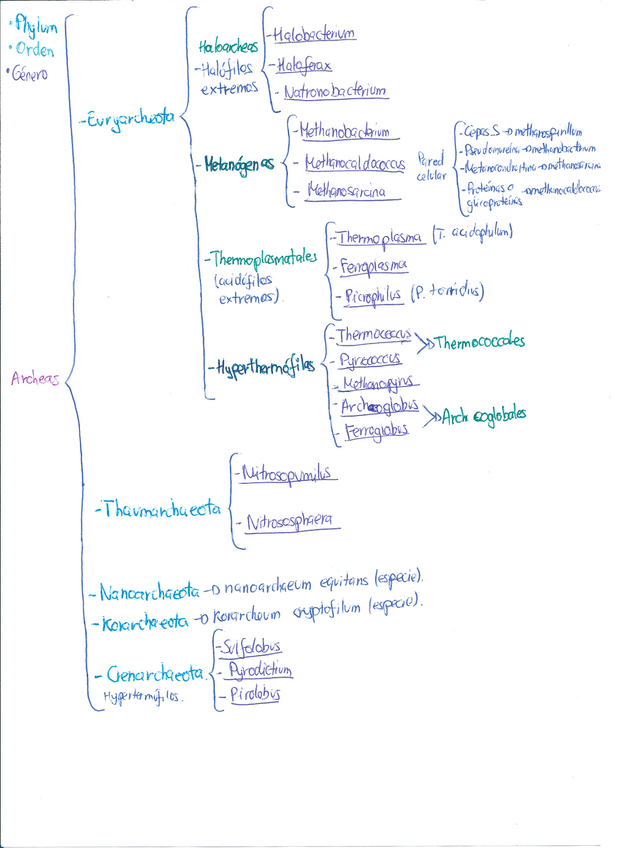 • Phylum
• Orden
• Género
Archeas
- Euryarcheota
Haloarcheas
- Halófilos
extremos
- Halobacterium
- Haloferax
- Natronobacterium
- Metanógenas
- Methanobacterium
- Methanocaldococcus
- Methanosarcina
Pared
celular
- Capas S → methanospirillum
- Pseudomureina → methanobacterium
- Metanocondroitina → methanosarcina
- Proteínas o → methanocaldococcus
glicoproteínas
- Thermoplasmatales
(acidófilos
extremos).
- Thermoplasma (T. acidophulum)
- Ferroplasma
- Picrophilus (P. torridus)
- Hyperthermófilos
- Thermococcus
- Pyrococcus
- Methanopyrus
- Archaeoglobus
- Ferroglobus
Thermococcales
Archaeoglobales
- Thaumarchaeota
- Nitrosopumilus
- Nitrososphaera
- Nanoarchaeota → nanoarchaeum equitans (especie).
- Korarchaeota → korarcheum cryptofilum (especie).
- Crenarchaeota.
Hypertermófilos.
- Sulfolobus
- Pyrodictium
- Pirolobus